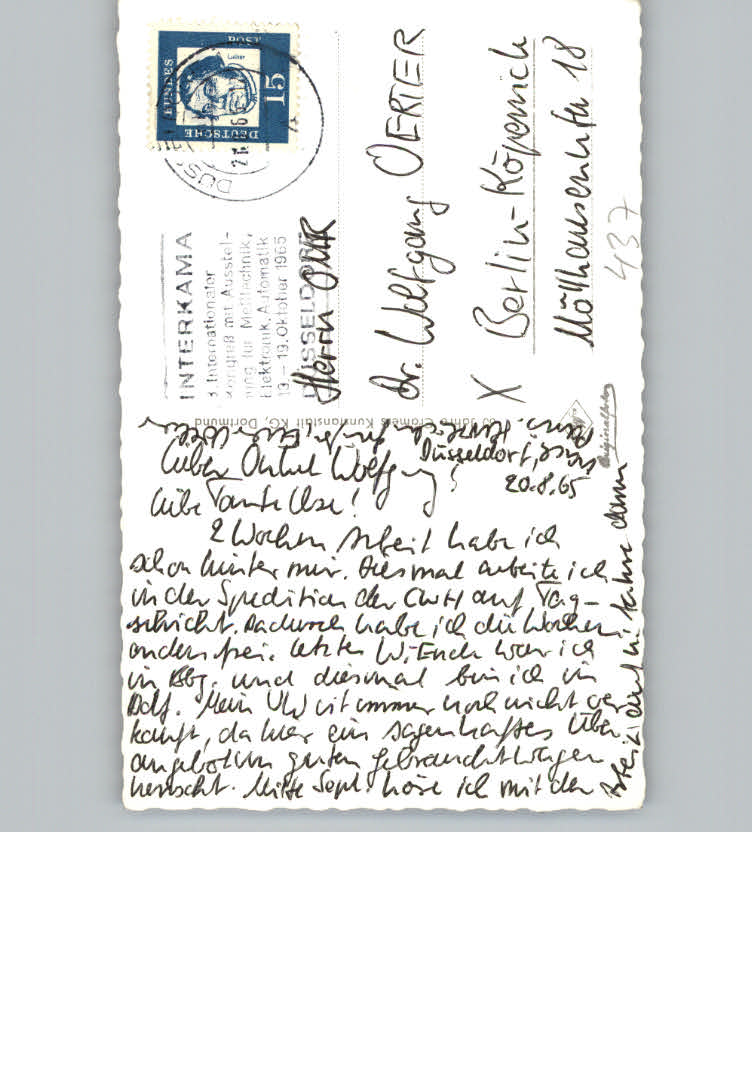 DEUTSCHE
BUNDES
POST
15
Luther
DÜSSELDORF
INTERKAMA
3. Internationaler
Kongreß mit Ausstel-
lung für Meßtechnik,
Elektronik, Automatik
13.-19. Oktober 1965
DÜSSELDORF
Herrn OMR
Dr. Wolfgang OERTER
X Berlin-Köpenick
Möllhausenufer 18
437
Jahre Cramers Kunstanstalt KG, Dortmund
Originalfoto
Düsseldorf, den
20.8.65
Lieber Onkel Wolfgang!
Liebe Tante Ilse!
2 Wochen Arbeit habe ich
schon hinter mir. Diesmal arbeite ich
in der Spedition der CWH auf Tag-
schicht. Dadurch habe ich die Wochen
enden frei. Letztes W.-Ende war ich
in Bbg. und diesmal bin ich in
Ddf. Mein VW ist immer noch nicht ver
kauft, da hier ein sagenhaftes Über
angebot an guten Gebrauchtwagen
herrscht. Mitte Sept. höre ich mit der
Arbeit auf u. fahre dann
Herzliche Grüße, Euer